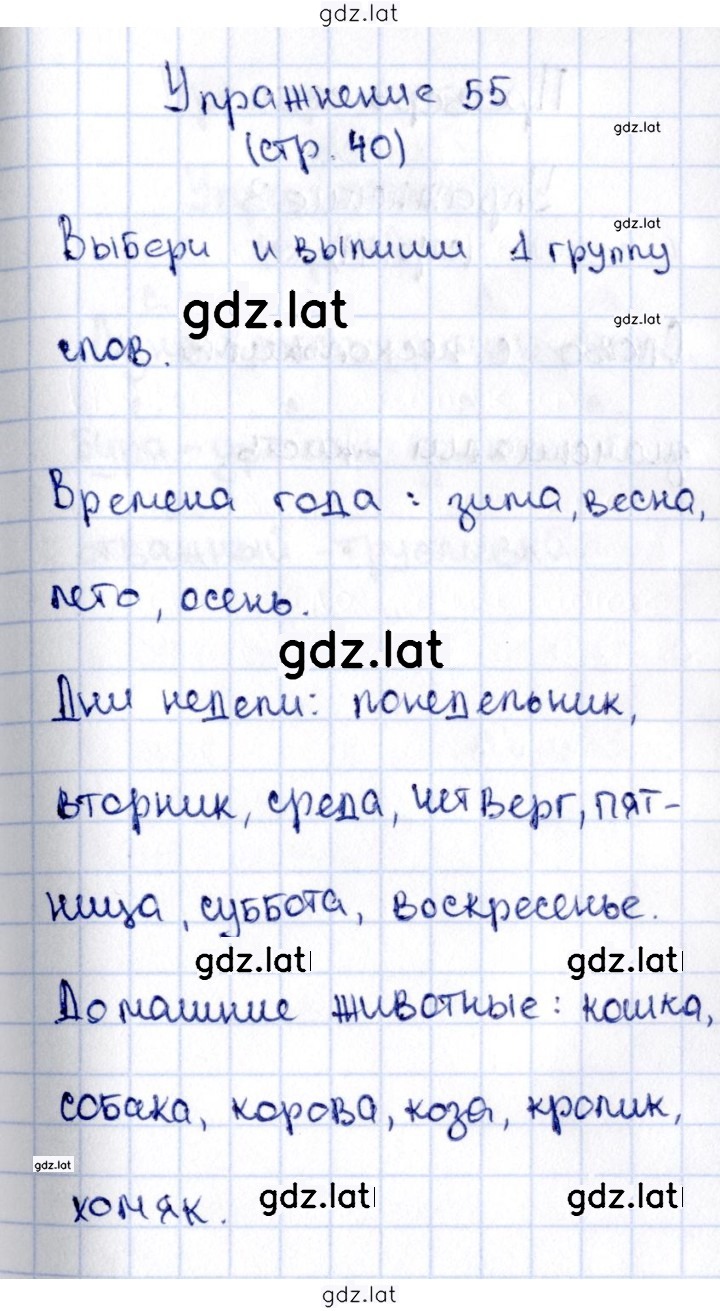 gdz.lat
Упражнение 55
gdz.lat
(стр. 40)
gdz.lat
Выбери и выпиши 1 группу
gdz.lat
gdz.lat
слов.
Времена года: зима, весна,
лето, осень.
gdz.lat
Дни недели: понедельник,
вторник, среда, четверг, пят-
ница, суббота, воскресенье.
gdz.lat gdz.lat
Домашние животные: кошка,
собака, корова, коза, кролик,
gdz.lat
хомяк.
gdz.lat gdz.lat
gdz.lat